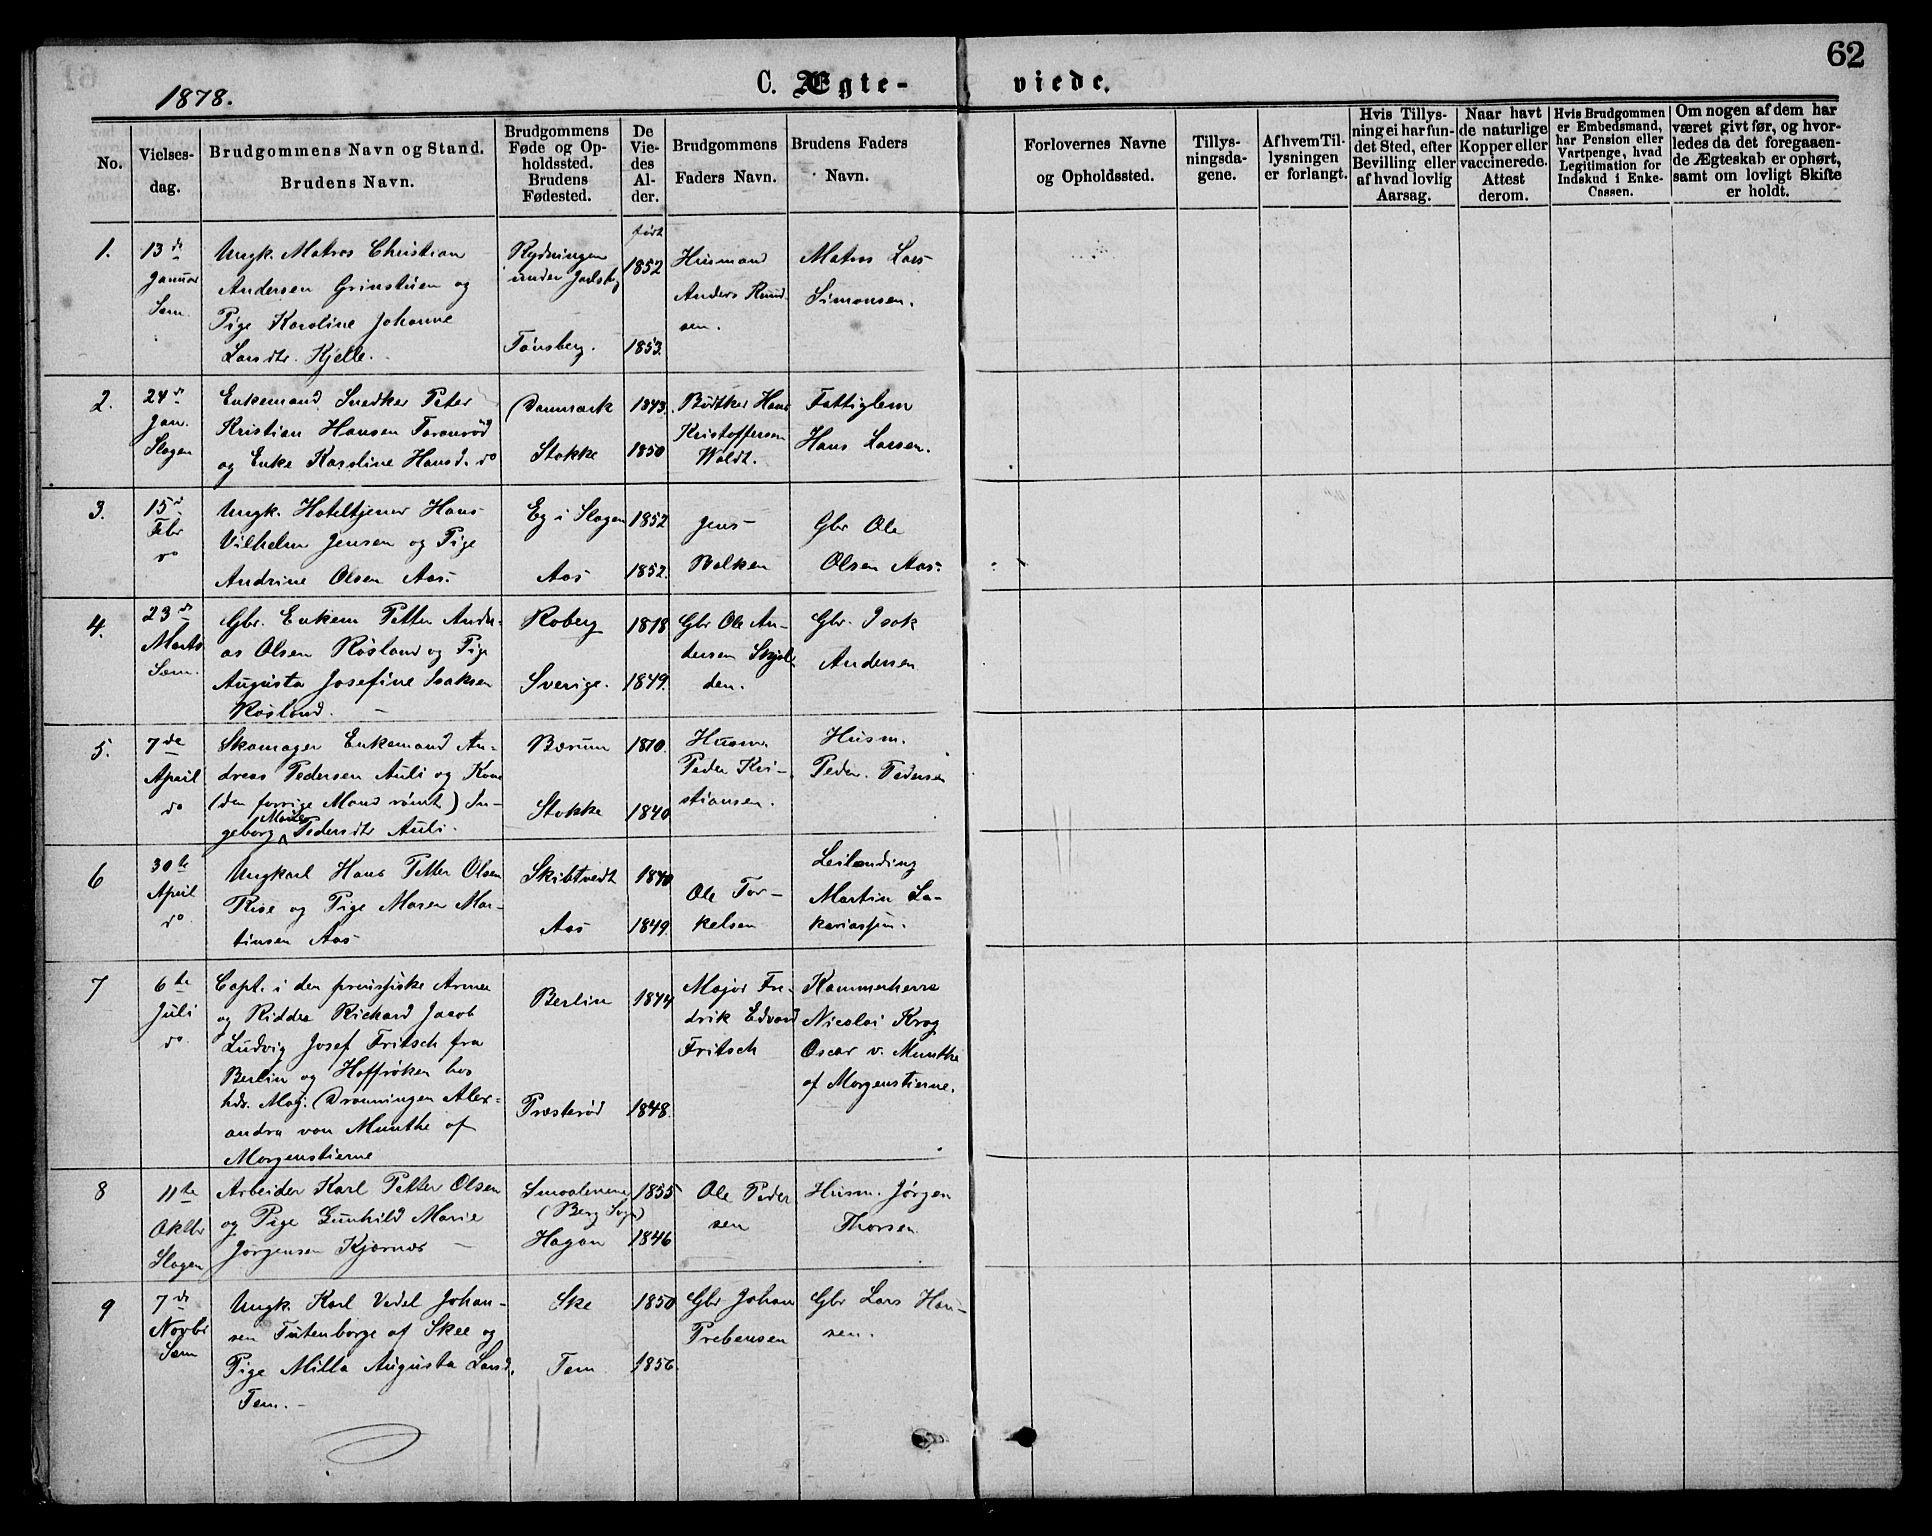 62
1878.
C. Ægte- viede.
No.
Vielses-
dag.
Brudgommens Navn og Stand.
Brudens Navn.
Brudgommens
Føde og Op-
holdssted.
Brudens
Fødested.
De
Vie-
des
Al-
der.
Brudgommens
Faders Navn.
Brudens Faders
Navn.
Forlovernes Navne
og Opholdssted.
Tillys-
ningsda-
gene.
Af hvem Til-
lysningen
er forlangt.
Hvis Tillys-
ning ei har fun-
det Sted, efter
Bevilling eller
af hvad lovlig
Aarsag.
Naar havt
de naturlige
Kopper eller
vaccinerede.
Attest
derom.
Hvis Brudgommen
er Embedsmand,
har Pension eller
Vartpenge, hvad
Legitimation for
Indskud i Enke-
Cassen.
Om nogen af dem har
været givt før, og hvor-
ledes da det foregaaen-
de Ægteskab er ophørt,
samt om lovligt Skifte
er holdt.
1.
13de
Januar
Sem.
Ungk. Matros Christian
Andersen Grinstuen og
Pige Karoline Johanne
Larsdtr. Kjelle.
Rydningen
under Jarlsbg
Tønsberg.
født
1852
1853.
Husmand
Anders Knud-
sen.
Matros Lars
Simonsen.
2.
24d
Jan.
Slagen
Enkemand Snedker Peter
Kristian Hansen Faranrød
og Enke Karoline Hansd. do
Danmark
Stokke
1843.
1850
Bødtker Hans
Kristoffersen
Woldt.
Fattiglem
Hans Larsen.
3.
15d
Febr
do
Ungk. Hoteltjener Hans
Vilhelm Jensen og Pige
Andrine Olsen Aas.
Eg i Slagen
Aas
1852
1852.
Jens
Balken
Gbr Ole
Olsen Aas.
4.
23d
Marts
Sem.
Gbr. Enkem Petter Andre-
as Olsen Røsland og Pige
Augusta Josefine Isaksen
Røsland.
Roberg
Sverige.
1818
1849.
Gbr Ole An-
dersen Skjel-
den.
Gbr. Isak
Andersen
5.
7de
April
do
Skomager Enkemand An-
dreas Pedersen Auli og Kone
(den forrige Mand rømt) In-
geborg Marie Pedersdtr Auli.
Bærum
Stokke
1810.
1840
Husm.
Peder Kri-
stiansen.
Husm.
Peder Pedersen
6
30te
April
do
Ungkarl Hans Petter Olsen
Rise og Pige Maren Mar-
tinsen Aas
Skibtvedt
Aas
1840
1849.
Ole Tor-
kelsen
Leilænding
Martin Za-
kariassen.
7
6te
Juli
do
Capt. i den preussiske Armee
og Ridder Richard Jacob
Ludvig Josef Fritsch fra
Berlin og Hoffrøken hos
hds. Maj. Dronningen Alex-
andra von Munthe af
Morgenstierne
Berlin
Præsterød
1844
1848.
Major Fre-
drik Edvard
Fritsch
Kammerherre
Nicolai Krog
Oscar v. Munthe
af Morgenstierne.
8
11te
Oktbr
Slagen
Arbeider Karl Petter Olsen
og Pige Gunhild Marie
Jørgensen Kjærnæs
Smaalenene
(Berg Sogn)
Hagan
1855
1846
Ole Peder
sen
Husm. Jørgen
Thorsen
9
7de
Novbr
Sem
Ungk. Karl Vedel Johan-
sen Tutenborge af Skee og
Pige Milla Augusta Larsd.
Tem.
Ske
Tem
1850
1856.
Gbr Johan
Prebensen
Gbr Lars Han-
sen.